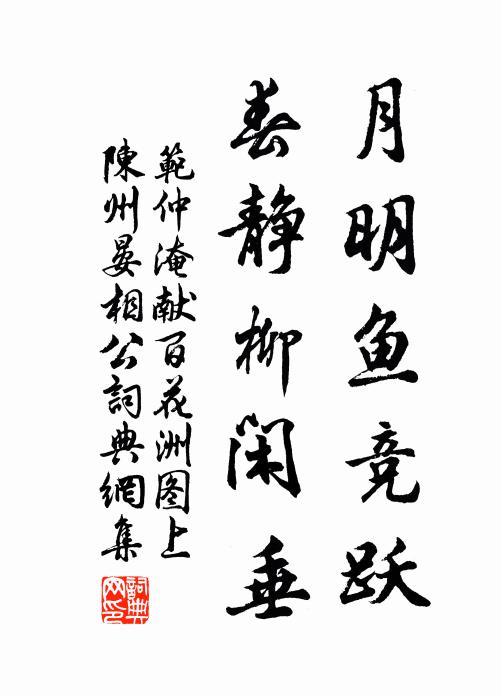 月明鱼竞跃
春静柳闲垂
範仲淹献百花洲图上
陳州晏相公詞典網集
詞典网印